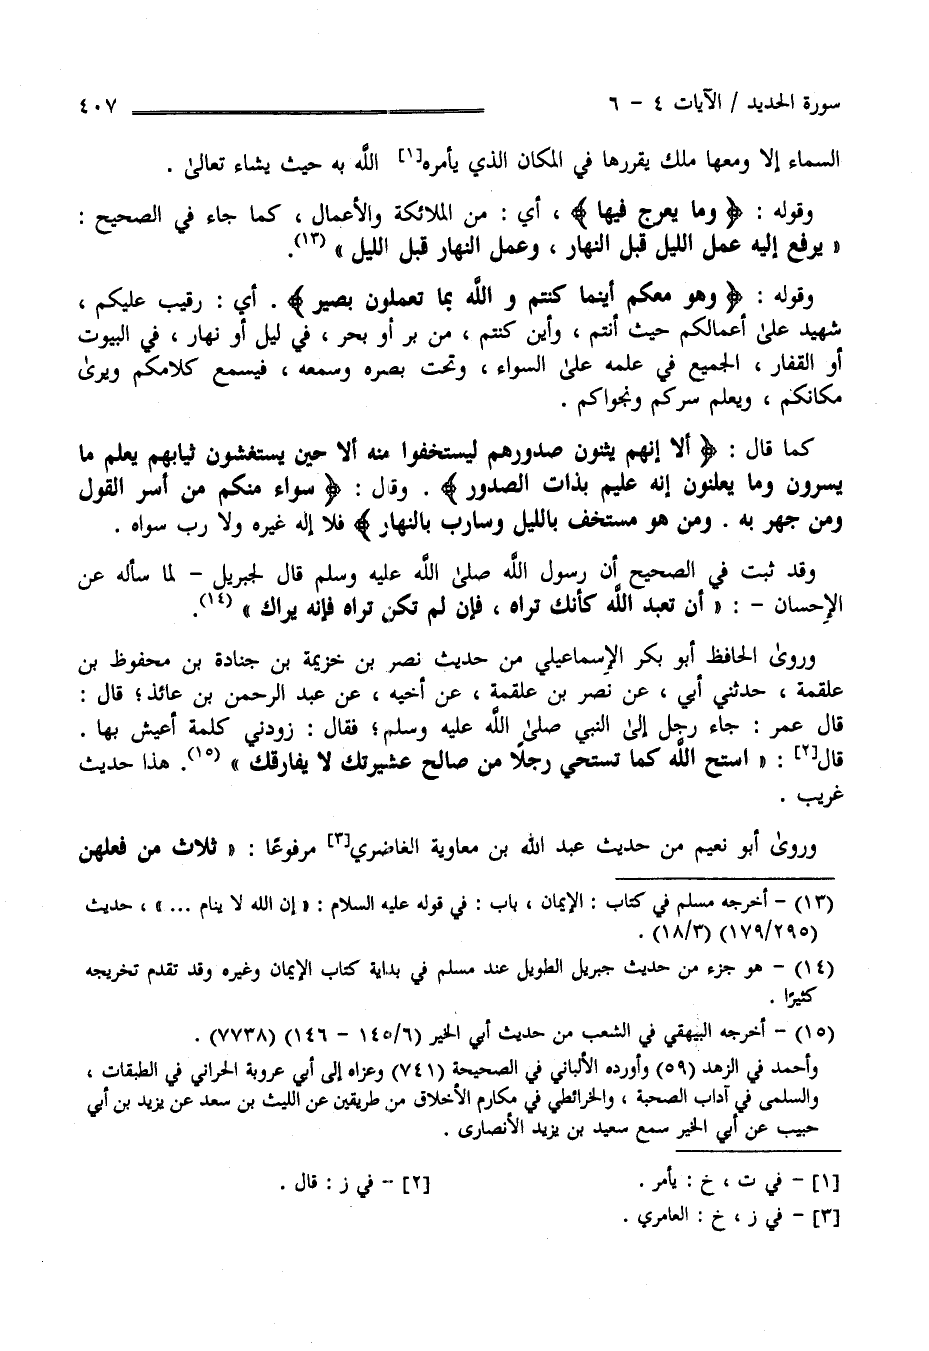 سورة الحديد / الآيات ٤ - ٦ ٤٠٧
السماء إلا ومعها ملك يقررها في المكان الذي يأمره[١] الله به حيث يشاء تعالىٰ .
وقوله : ﴿ وما يعرج فيها ﴾ ، أي : من الملائكة والأعمال ، كما جاء في الصحيح :
« يرفع إليه عمل الليل قبل النهار ، وعمل النهار قبل الليل » (١٣).
وقوله : ﴿ وهو معكم أينما كنتم و الله بما تعملون بصير ﴾ . أي : رقيب عليكم ،
شهيد علىٰ أعمالكم حيث أنتم ، وأين كنتم ، من بر أو بحر ، في ليل أو نهار ، في البيوت
أو القفار ، الجميع في علمه علىٰ السواء ، وتحت بصره وسمعه ، فيسمع كلامكم ويرىٰ
مكانكم ، ويعلم سركم ونجواكم .
كما قال : ﴿ ألا إنهم يثنون صدورهم ليستخفوا منه ألا حين يستغشون ثيابهم يعلم ما
يسرون وما يعلنون إنه عليم بذات الصدور ﴾ . وقال : ﴿ سواء منكم من أسر القول
ومن جهر به . ومن هو مستخف بالليل وسارب بالنهار ﴾ فلا إله غيره ولا رب سواه .
وقد ثبت في الصحيح أن رسول الله صلىٰ الله عليه وسلم قال لجبريل - لما سأله عن
الإحسان - : « أن تعبد الله كأنك تراه ، فإن لم تكن تراه فإنه يراك » (١٤).
وروىٰ الحافظ أبو بكر الإسماعيلي من حديث نصر بن خزيمة بن جنادة بن محفوظ بن
علقمة ، حدثني أبي ، عن نصر بن علقمة ، عن أخيه ، عن عبد الرحمن بن عائذ؛ قال :
قال عمر : جاء رجل إلىٰ النبي صلىٰ الله عليه وسلم؛ فقال : زودني كلمة أعيش بها .
قال[٢] : « استح الله كما تستحي رجلًا من صالح عشيرتك لا يفارقك » (١٥). هذا حديث
غريب .
وروىٰ أبو نعيم من حديث عبد الله بن معاوية الغاضري[٣] مرفوعًا : « ثلاث من فعلهن
(١٣) - أخرجه مسلم في كتاب : الإيمان ، باب : في قوله عليه السلام : « إن الله لا ينام ... » ، حديث
(١٧٩/٢٩٥) (١٨/٣) .
(١٤) - هو جزء من حديث جبريل الطويل عند مسلم في بداية كتاب الإيمان وغيره وقد تقدم تخريجه
كثيرًا .
(١٥) - أخرجه البيهقي في الشعب من حديث أبي الخير (١٤٥/٦ - ١٤٦) (٧٧٣٨) .
وأحمد في الزهد (٥٩) وأورده الألباني في الصحيحة (٧٤١) وعزاه إلى أبي عروبة الحراني في الطبقات ،
والسلمى في آداب الصحبة ، والخرائطي في مكارم الأخلاق من طريقين عن الليث بن سعد عن يزيد بن أبي
حبيب عن أبي الخير سمع سعيد بن يزيد الأنصارى .
[١] - في ت ، خ : يأمر . [٢] - في ز : قال .
[٣] - في ز ، خ : العامري .